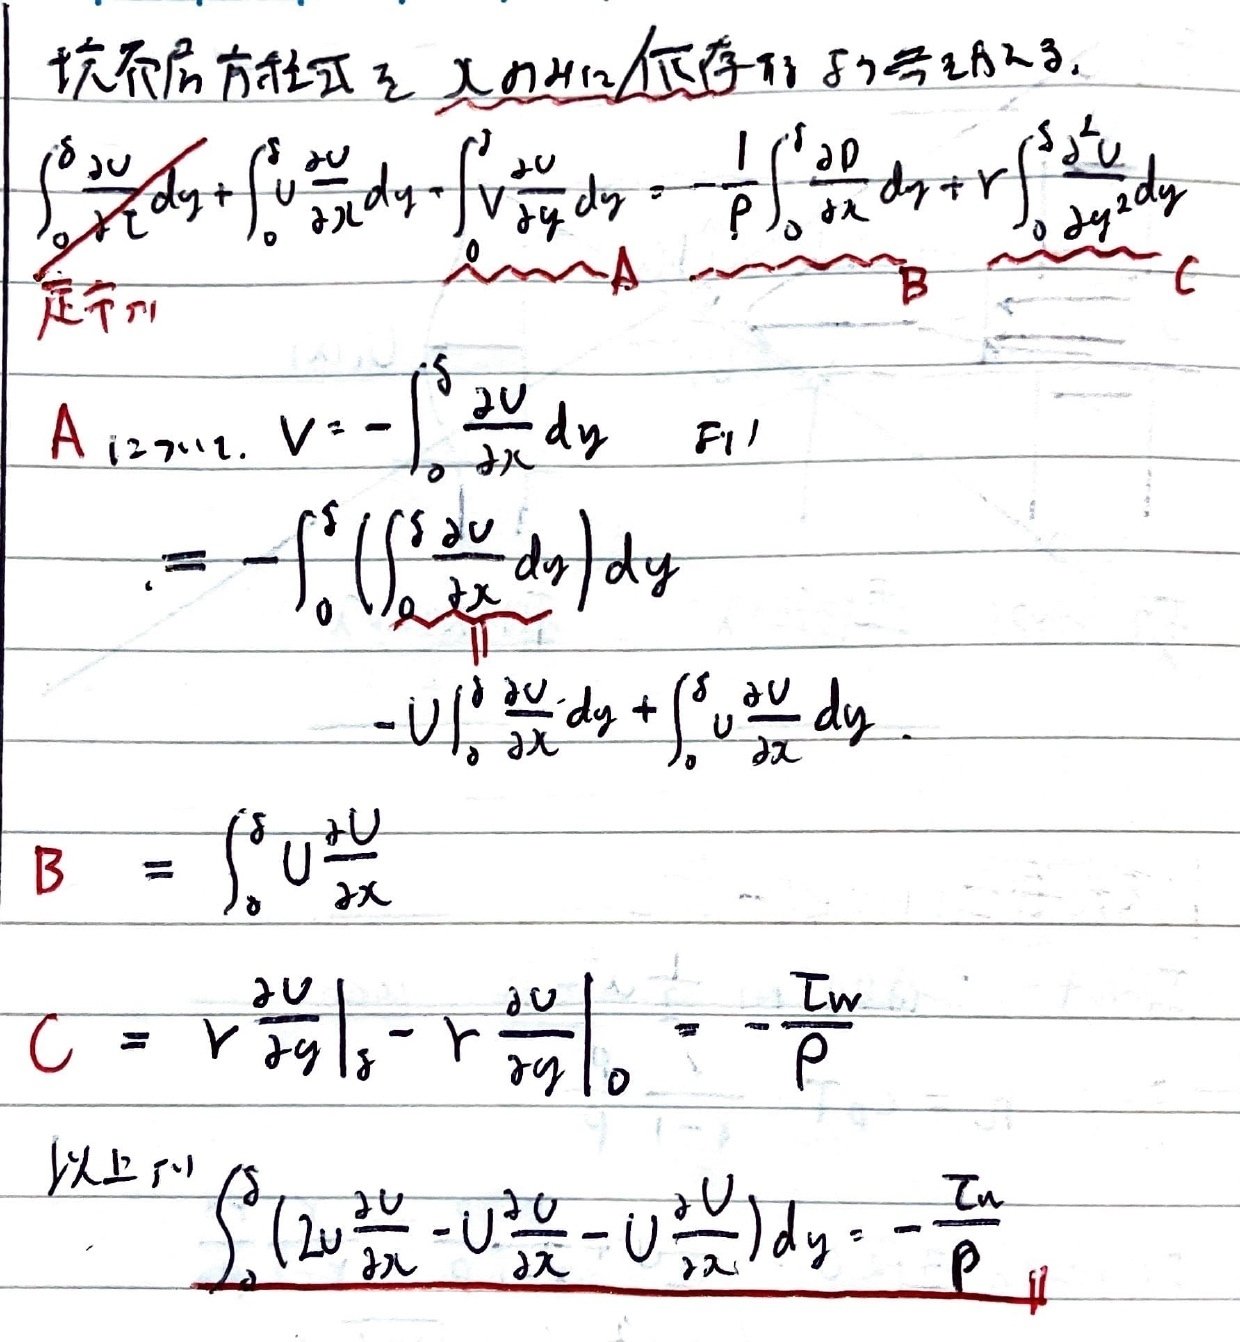 境界層方程式を xのみに依存するよう書き加える.
∫₀^δ ∂u/∂t dy + ∫₀^δ u ∂u/∂x dy + ∫₀^δ v ∂u/∂y dy = -1/ρ ∫₀^δ ∂p/∂x dy + ν ∫₀^δ ∂²u/∂y² dy
A B C
定常より
A について. v = -∫₀^δ ∂u/∂x dy より
= -∫₀^δ (∫₀^δ ∂u/∂x dy) dy
-U ∫₀^δ ∂u/∂x dy + ∫₀^δ u ∂u/∂x dy.
B = ∫₀^δ U ∂U/∂x
C = ν ∂u/∂y |_δ - ν ∂u/∂y |₀ = - τw/ρ
以上より
∫₀^δ (2u ∂u/∂x - U ∂u/∂x - U ∂U/∂x) dy = - τw/ρ